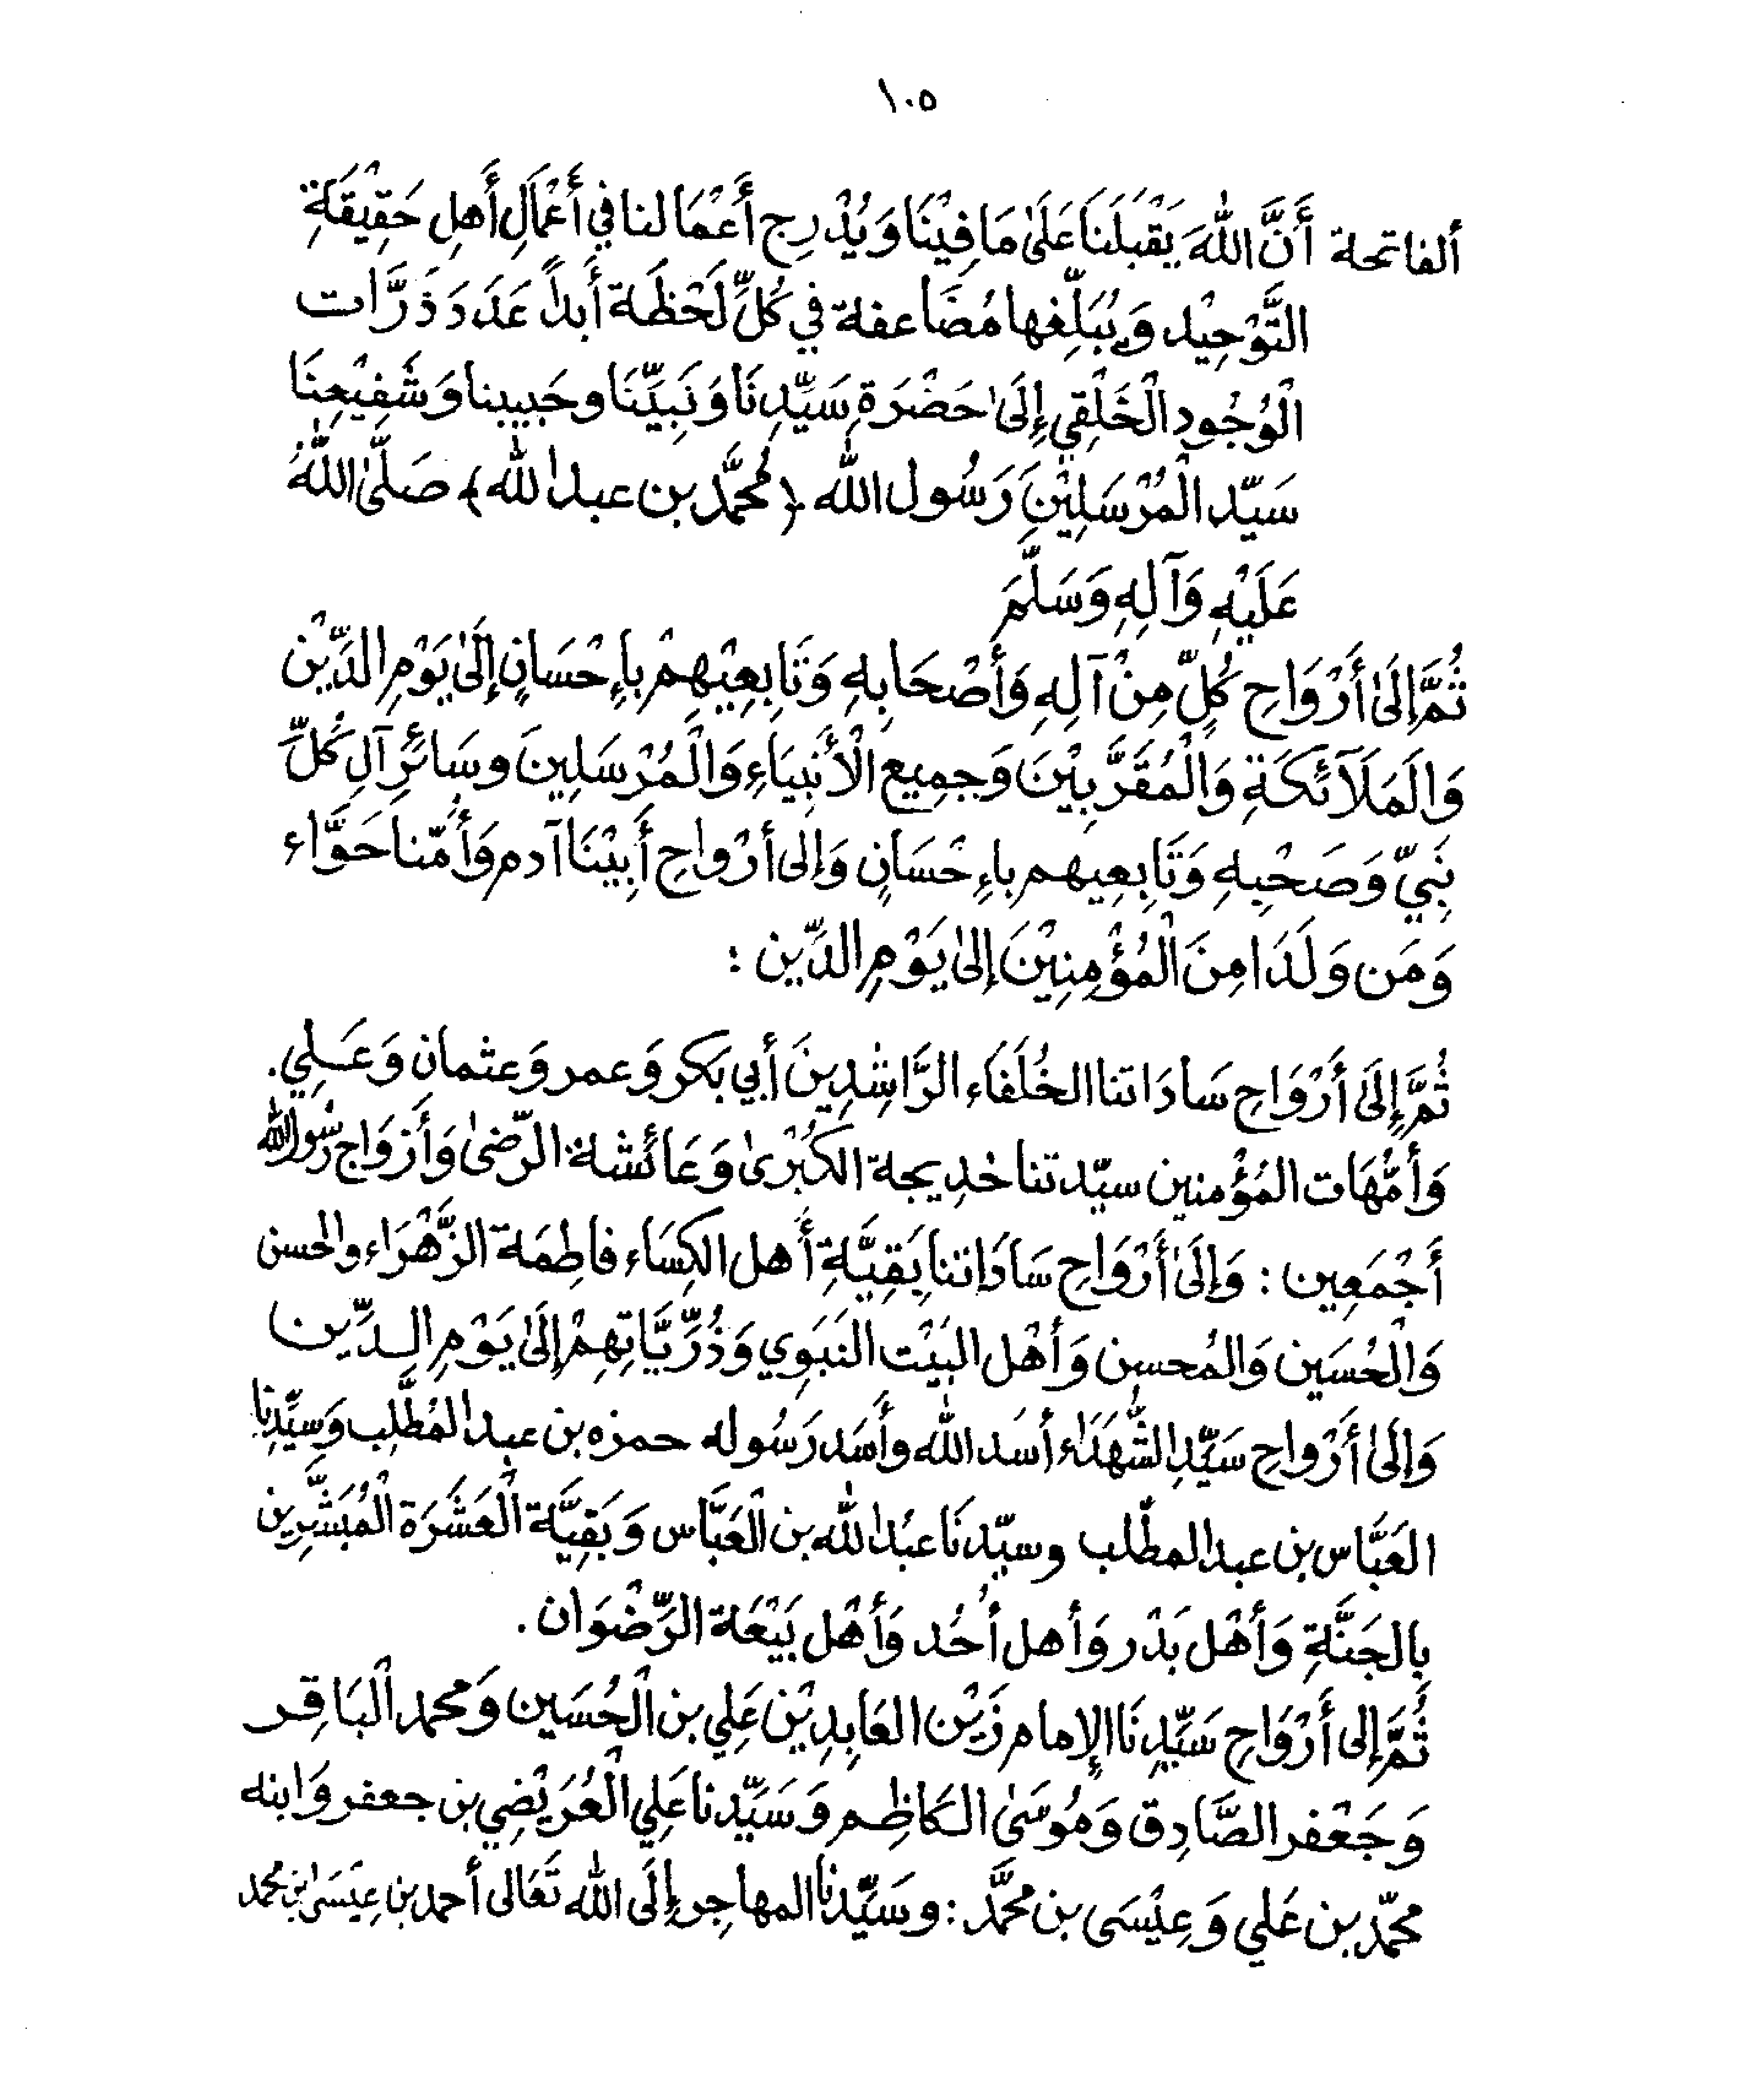 ١٠٥
ألفاتحة أَنَّ اللهَ يَقْبَلَنَا عَلَىٰ مَا فِيْنَا وَيُدْرِج أَعْمَالنا في أَعْمَالِ أَهلِ حَقِيْقَةِ
التَّوْحِيْد وَيُبَلِّغها مُضَاعفة في كُلِّ لَحْظَة أَبداً عَدَدَ ذَرَّات
الْوُجُودِ الْخَلْقِي إِلَىٰ حَضْرَةِ سَيِّدِنَا وَنَبِيِّنَا وحَبِيبنا وَشَفِيْعِنَا
سَيّد الْمُرْسَلِيْنَ رَسُول الله ﴿مُحمَّد بن عبد الله﴾ صَلَّىٰ اللَّهُ
عَلَيْهِ وَآلِهِ وَسَلَّمَ
ثُمَّ إِلَىٰ أَرْوَاحِ كُلٍّ مِنْ آلِهِ وَأَصْحَابِهِ وَتَابِعِيْهِمْ بِإِحْسَانٍ إِلَىٰ يَوْمِ الدِّيْن
وَالَمَلَآئكَةِ وَالْمُقَرَّبِيْنَ وَجمِيع الْأَنْبِيَاءِ وَالْمُرْسَلِينَ وسَائرِ آلِ كُلِّ
نَبِيّ وَصَحْبِهِ وَتَابِعِيهم بإِحْسَانٍ وَإلى أرْواحِ أَبِيْنَا آدم وَأُمّنا حَوَّاء
وَمَن وَلَدَا مِنَ الْمُؤْمِنِيْنَ إلىٰ يَوْمِ الدِّين :
ثُمَّ إِلَىٰ أَرْوَاحِ سَادَاتنا الخُلَفَاء الرَّاشِدِينَ أَبي بَكر وَعمر وَعثمان وَعَـلِي.
وَأُمَّهَات المُؤْمنين سيّدتنا خدِيجة الكُبْرىٰ وَعَائشة الرّضىٰ وَأَزوَاجِ رَسُول الله
أَجْمَعِين : وَإِلَىٰ أَرْوَاحِ سَادَاتنا بَقِيَّةِ أَهل الكِسَاء فاطِمَة الزَّهْرَاء والحسن
وَالْحُسَين وَالمُحسن وَأَهْل البَيْت النَبَوِي وَذُرِّيَّاتِهِمْ إِلَىٰ يَوْمِ الـدِّين
وَإلىٰ أَرْواحِ سَيِّدِ الشُّهَدَاء أسَد الله وأَسَد رَسُوله حمزه بن عبد المُطَّلِب وَسَيِّدِنا
العَبَّاس بن عبد المطّلب وسيّدنَا عبْد الله بن الْعَبَّاس وَبَقِيَّة الْعَشَرَة الْمُبَشَّرِين
بِالجَنَّةِ وَأَهْل بَدْر وَأهل أُحُد وَأَهْل بَيْعَة الرِّضْوَان.
ثُمَّ إلى أَرْوَاحِ سَيِّدِنَا الإمام زَيْن العَابِدِيْن عَلِي بن الْحُسَين وَمحمد الْبَاقِر
وَجَعْفر الصَّادِق وَمُوسَىٰ الكَاظِم وَسَيِّدنا عَلِي الْعُرَيْضِي بن جعفر وَابنه
محمّد بن عَلي وَعِيْسَى بن محمَّد : وسَيِّدنا المهاجِر إِلَى الله تَعَالى أحمد بن عِيْسَىٰ بن محمد